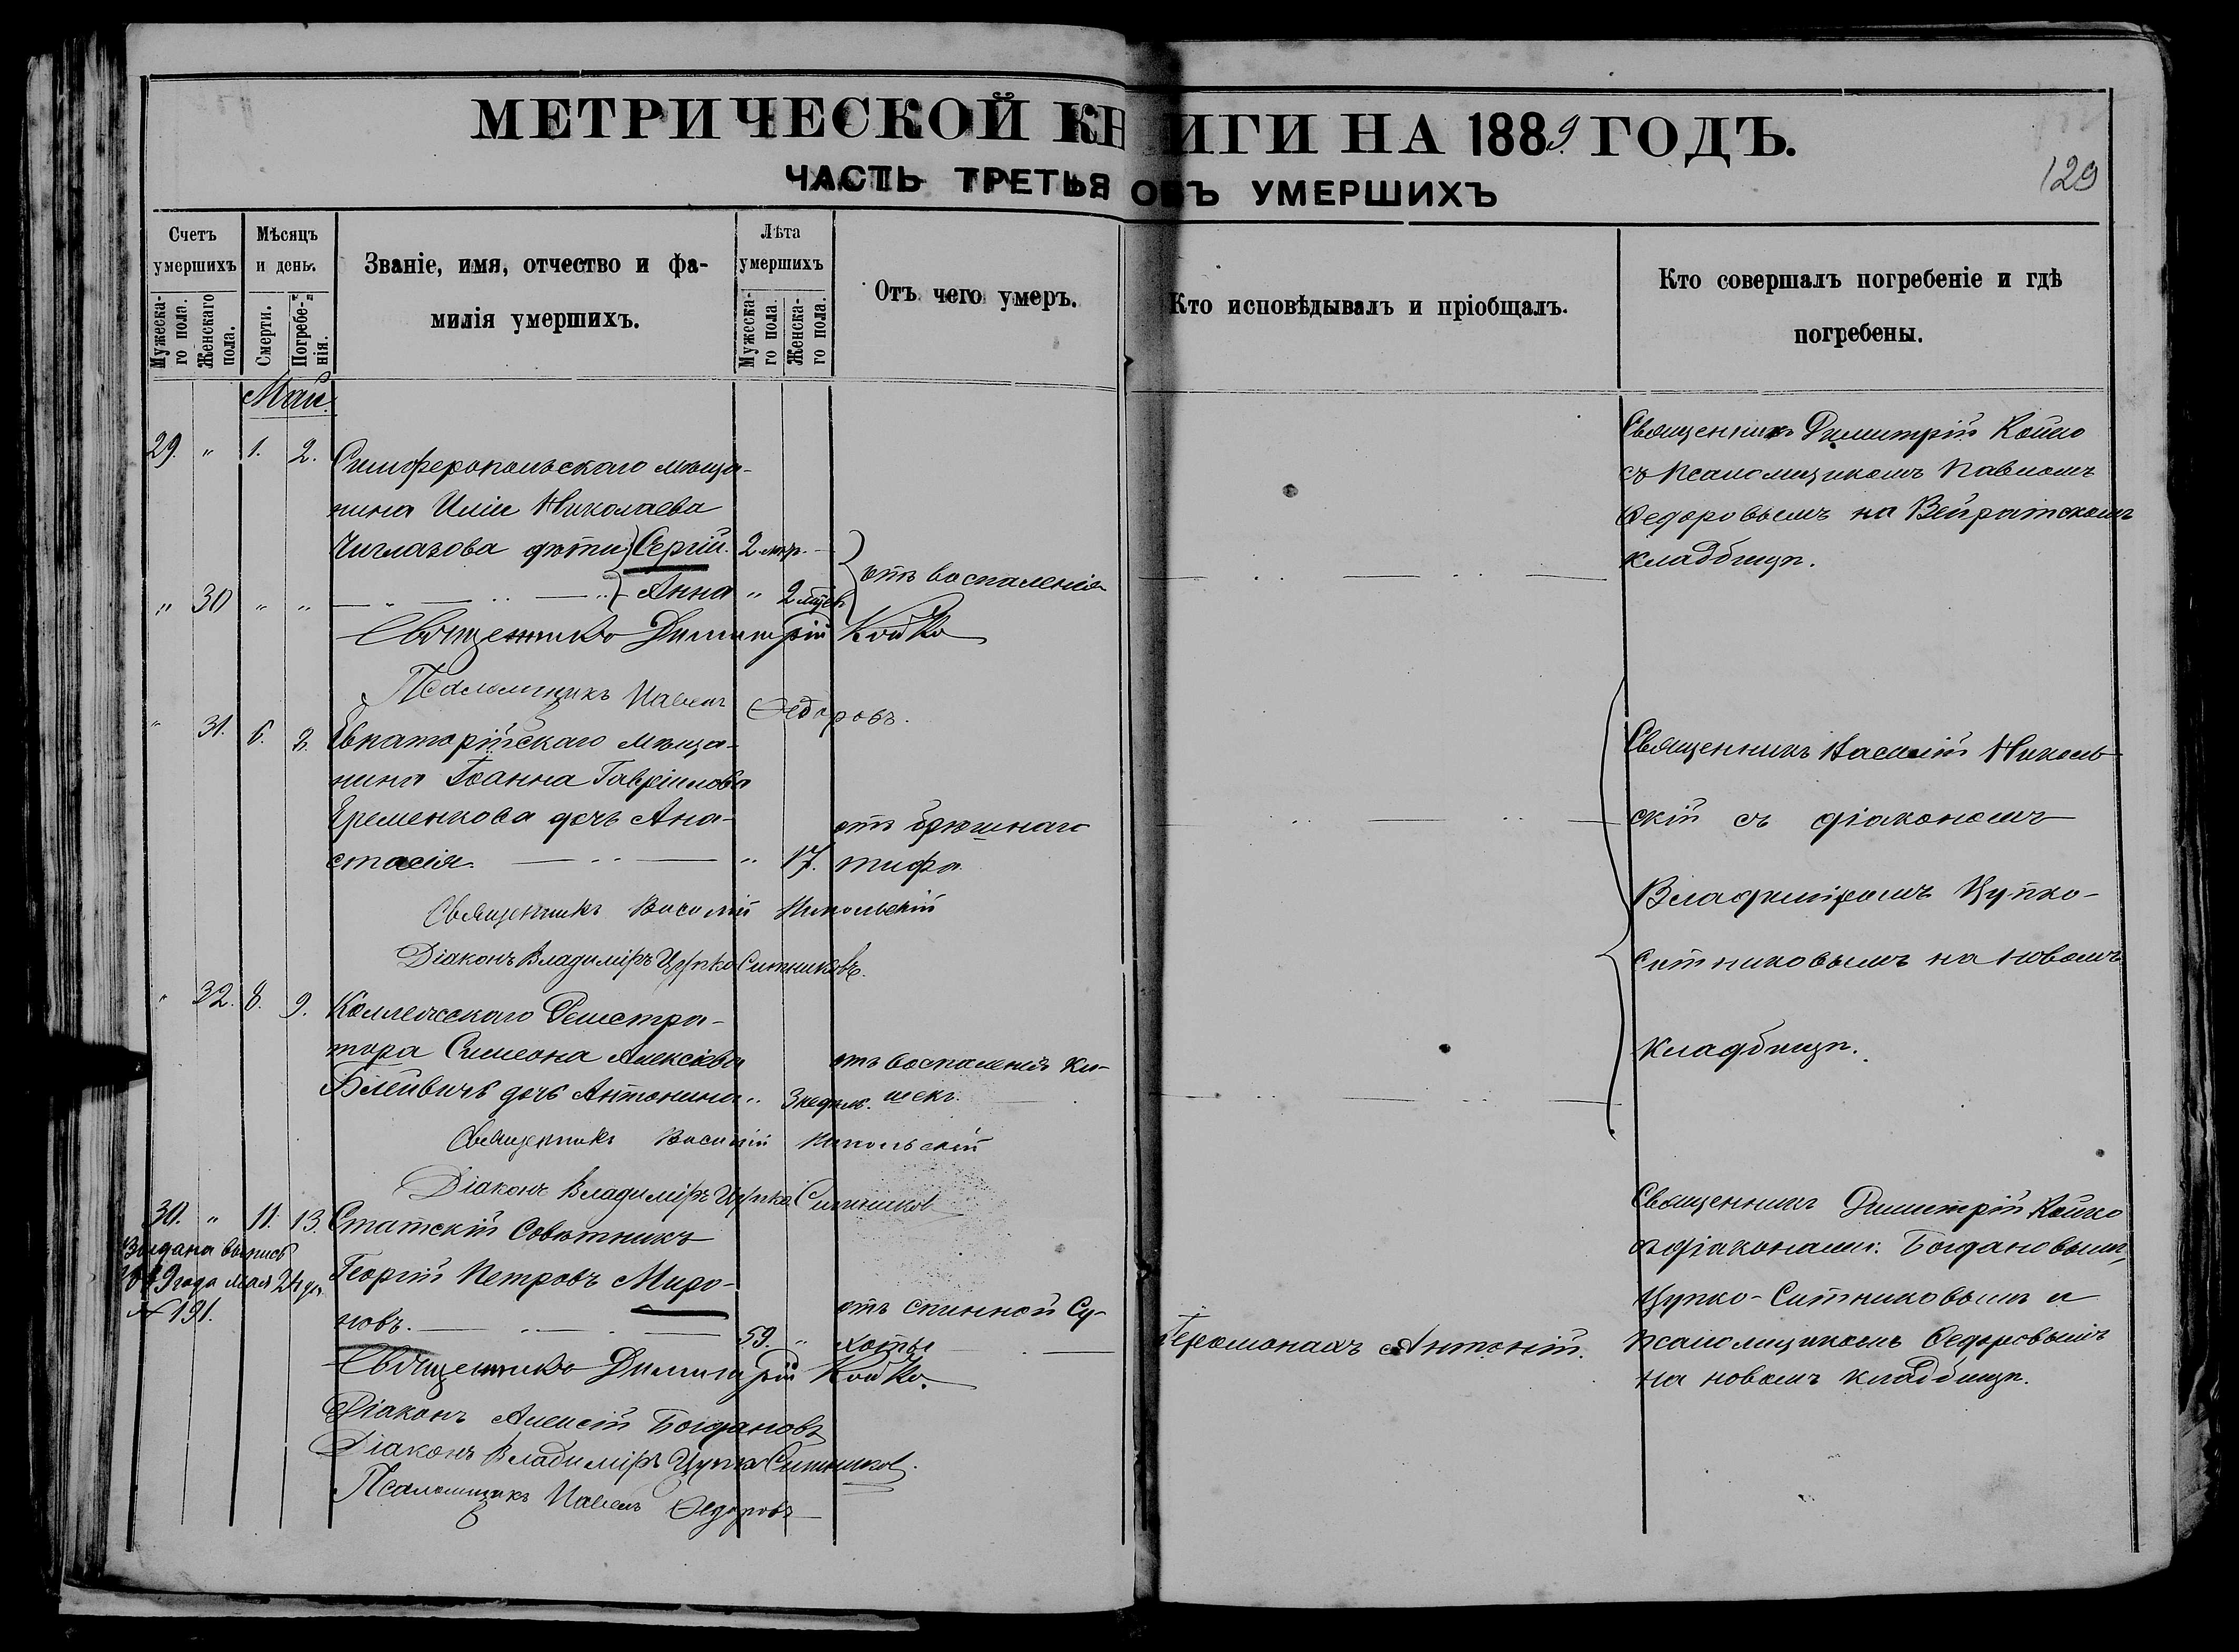 МЕТРИЧЕСКОЙ КНИГИ НА 1889 ГОДЪ.
ЧАСТЬ ТРЕТЬЯ ОБЪ УМЕРШИХЪ
129
Счетъ умершихъ
Мужеска-го пола.
Женскаго пола.
Мѣсяцъ и день.
Смерти.
Погребе-нія.
Званіе, имя, отчество и фа-
милія умершихъ.
Лѣта умершихъ
Мужеска-го пола.
Женска-го пола.
Отъ чего умеръ.
Кто исповѣдывалъ и пріобщалъ.
Кто совершалъ погребеніе и гдѣ
погребены.
Май.
29. " 1. 2. Симферопольскаго мѣща-
нина Иліи Николаева
дѣти Сергій. 2
" 30 " " Анна " 2 мѣсяц.
отъ воспаленія
Священникъ Димитрій Койко
съ псаломщикомъ Павломъ
Федоровымъ на
кладбищѣ.
Священникъ Димитрій Койко
Псаломщикъ Павелъ Федоровъ.
" 31. 6. 8. Евпаторійскаго мѣща-
нина Іоанна Гавріилова
Еременкова дочь Ана-
стасія. " 17.
отъ брюшнаго
тифа.
Священникъ Василій Николь-
скій съ діакономъ
Владиміромъ Цупко-
Ситниковымъ на новомъ
кладбищѣ.
Священникъ Василій Никольскій
Діаконъ Владиміръ Цупко Ситниковъ.
" 32. 8. 9. Коллежскаго Регистра-
тора Симеона Алексіева
дочь Антонина " 3 недѣл.
отъ воспаленія ки-
шекъ.
Священникъ Василій Никольскій
Діаконъ Владиміръ Цупко Ситниковъ
30. " 11. 13. Статскій Совѣтникъ
Георгій Петровъ Миро-
новъ. 59. "
отъ спинной су-
хотки
Выдана выпись
1889 года мая 24 дн.
№ 191.
Іеромонахъ Антоній.
Священникъ Димитрій Койко
съ діаконами: Богдановымъ,
Цупко-Ситниковымъ и
псаломщикомъ Федоровымъ
на новомъ кладбищѣ.
Священникъ Димитрій Койко.
Діаконъ Алексій Богдановъ
Діаконъ Владиміръ Цупко Ситниковъ.
Псаломщикъ Павелъ Федоровъ